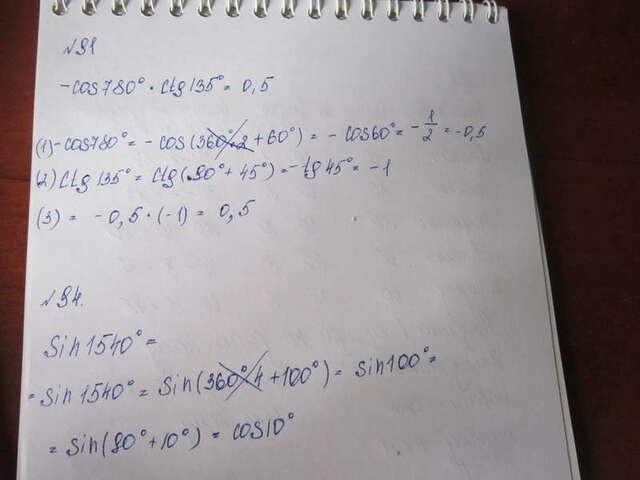 №91
-cos780°·ctg135°=0,5
(1)-cos780°= -cos(360°·2+60°)= - cos60°= -1/2 =-0,5
(2)ctg135°= ctg(90°+45°)=-tg45°= -1
(3) = -0,5·(-1)= 0,5
№94.
sin1540°=
=sin1540°= sin(360°·4+100°)= sin100°=
= sin(90°+10°) = cos10°